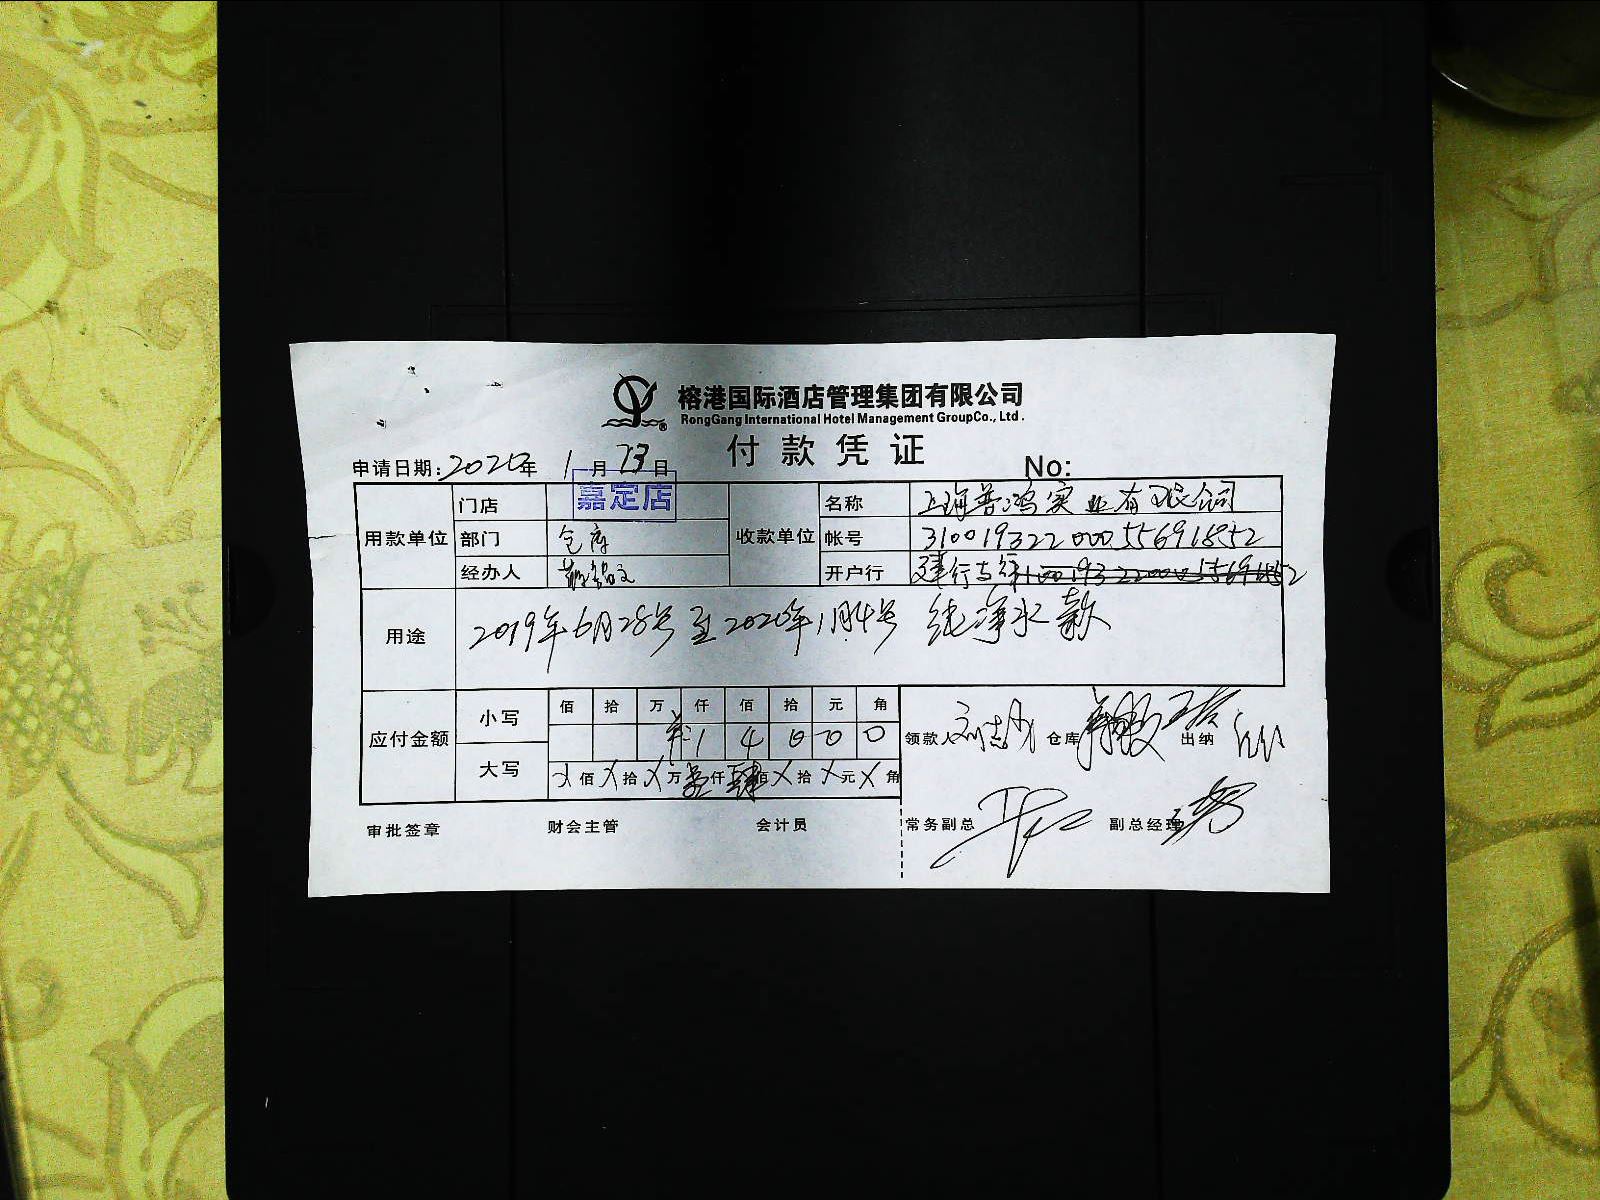 榕港国际酒店管理集团有限公司
RongGang International Hotel Management GroupCo., Ltd.
付款凭证
申请日期:2020年 1月 13日 No:
用款单位 门店 嘉定店 收款单位 名称 上海普鸿实业有限公司
部门 仓库 帐号 31001932200055691852
经办人 开户行 建行
用途 2019年6月28号至2020年1月4号 纯净水款
应付金额 小写 佰 拾 万 仟 佰 拾 元 角
1 4 0 0 0
大写 X佰 X拾 X万 壹仟 肆佰 X拾 X元 X角
领款人 仓库 出纳
审批签章 财会主管 会计员 常务副总 副总经理